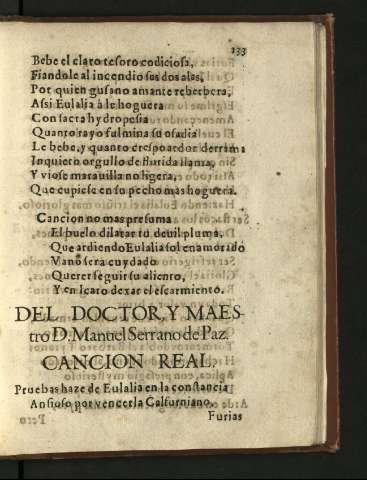 133
Bebe el claro tesoro codiciosa,
Fiandole al incendio sus dos alas,
Por quien gusano amante reberbera,
Assi Eulalia à le hoguera
Con sacra hydropesia
Quanto rayo fulmina su osadia
Le bebe, y quanto crespo ardor derrama
Inquieto orgullo de florida llama,
Y viose marauilla no ligera,
Que cupiese en su pecho mas hoguera.
Cancion no mas presuma
El buelo dilatar tu deuil pluma,
Que ardiendo Eulalia sol enamorado
Vano serà cuydado
Querer seguir su aliento,
Y en Icaro dexar el escarmiento.
DEL DOCTOR, Y MAES-
tro D. Manuel Serrano de Paz.
CANCION REAL,
Pruebas haze de Eulalia en la constancia
Ansioso por vencerla Calfurniano,
Furias